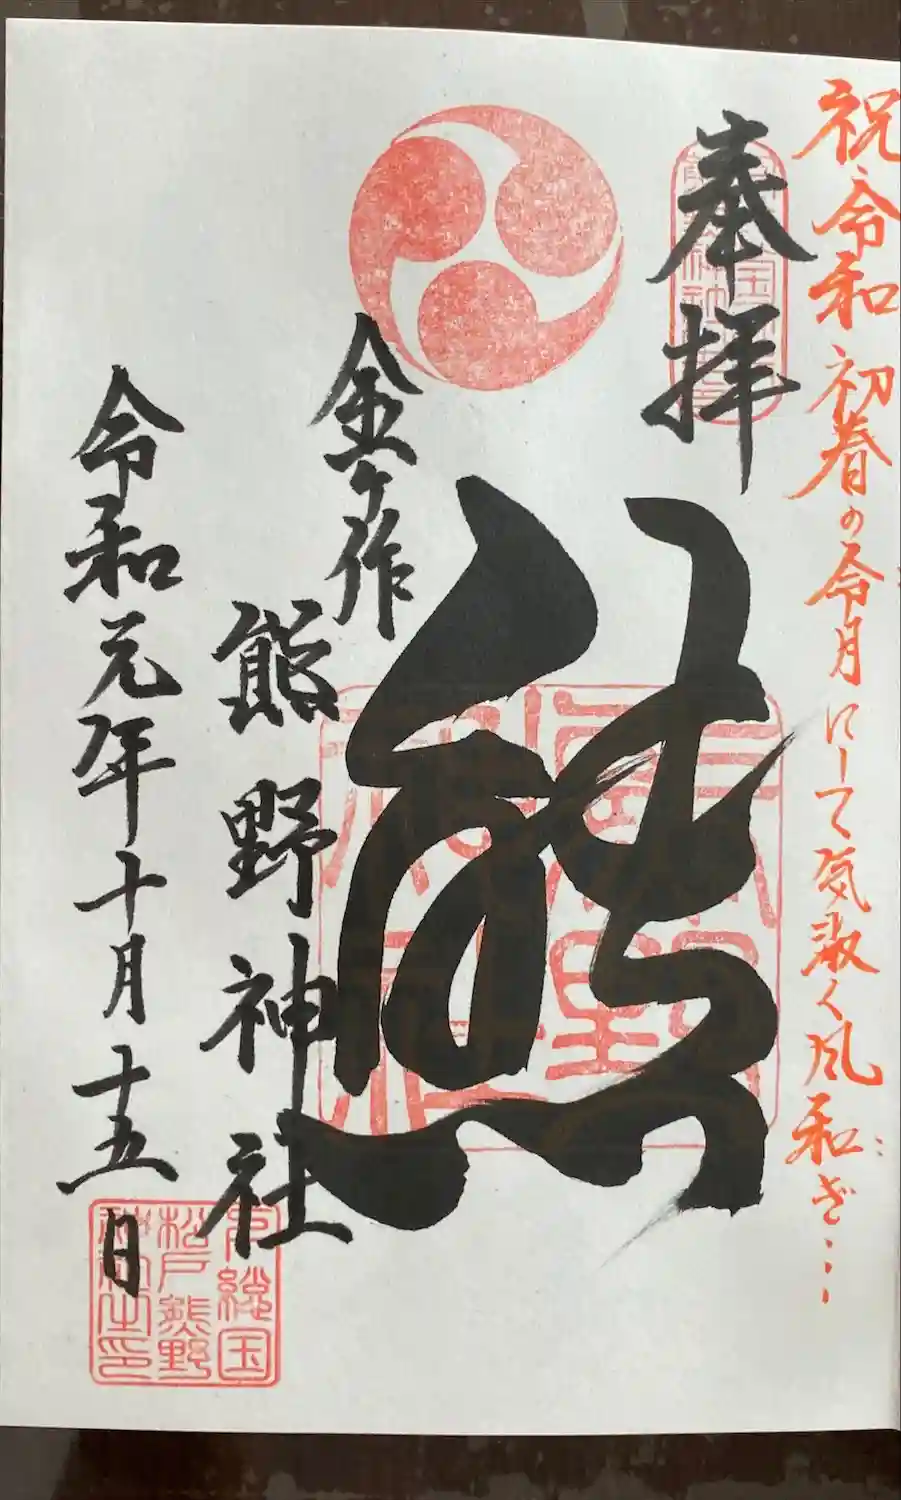 祝令和 初春の令月にして気淑く風和ぎ…
奉拝
熊
金ケ作
熊野神社
令和元年十月十五日
熊野神社
下総国
松戸熊野
神社之印